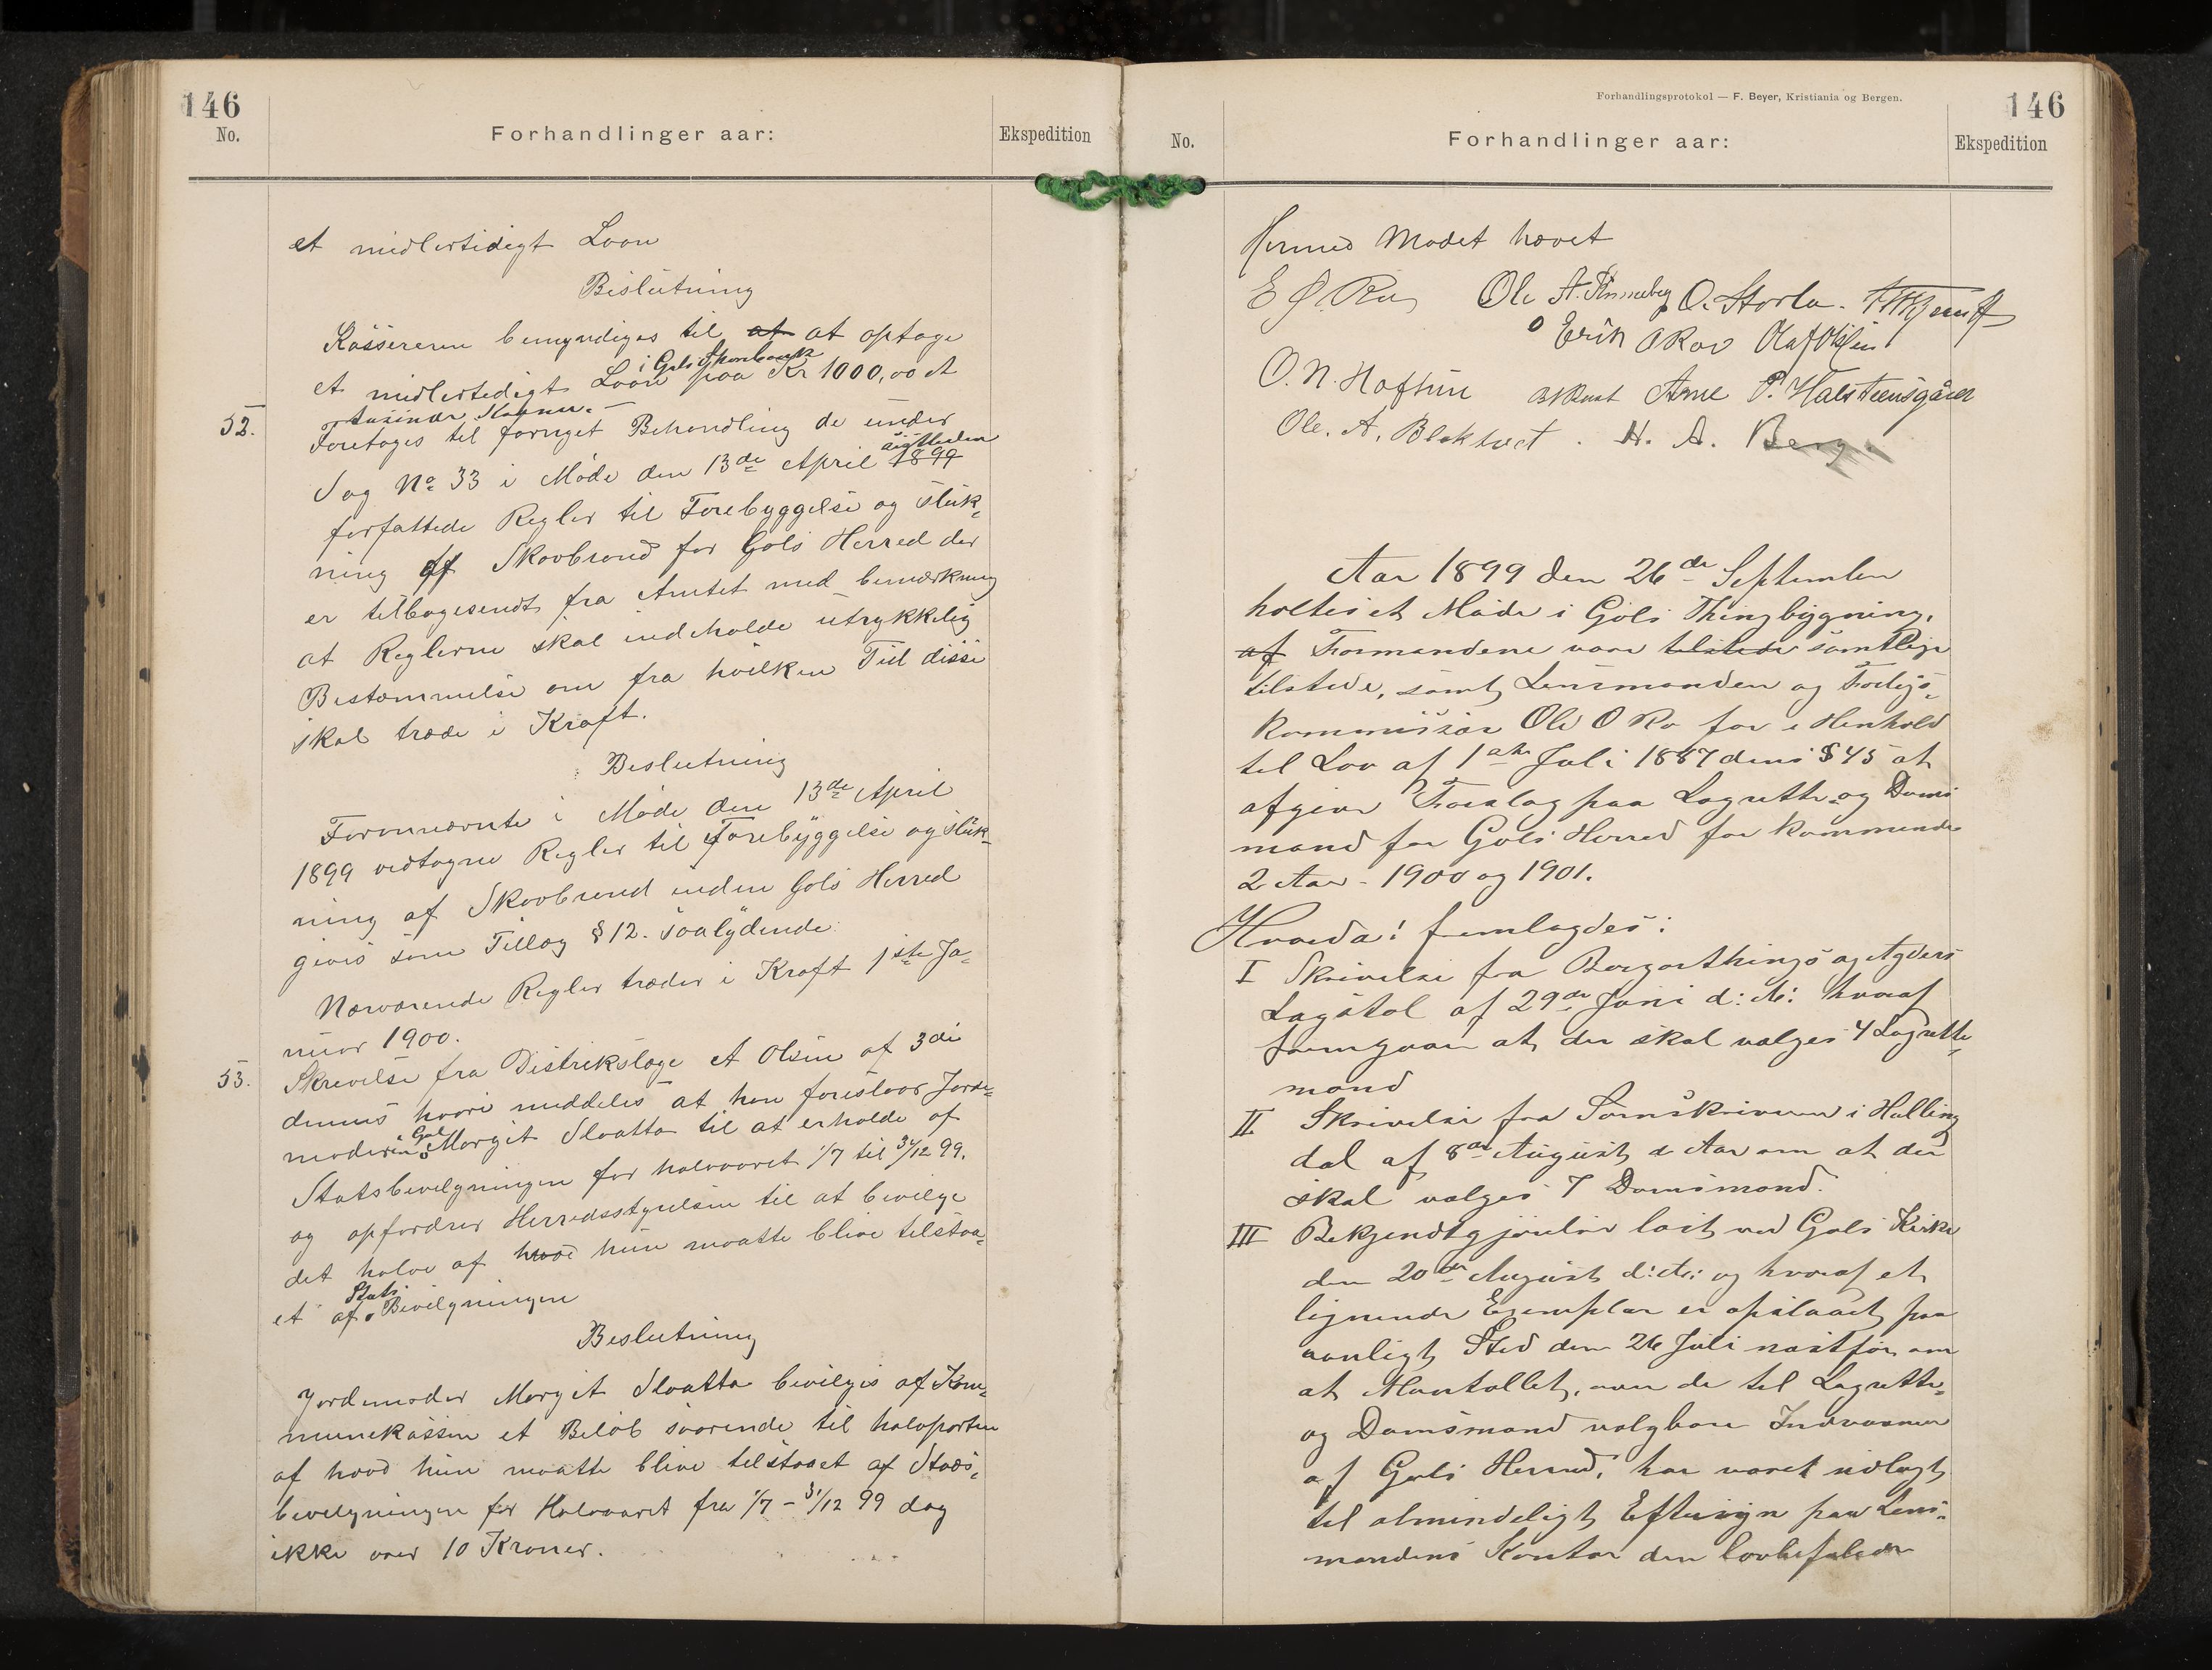 146
No.
Forhandlinger aar:
Ekspedition
et midlertidigt Laan
Beslutning
Kassereren bemyndiges til at at optage
i Gols Sparebank
et midlertedigt Laan paa Kr 1000,00 et
tusinde Kroner.
52. Foretages til fornyet Behandling de under
Sag No 33 i Møde den 13de April 1899
forfattede Regler til Forebyggelse og sluk-
ning af Skovbrand for Gols Herred der
er tilbagesendt fra Amtet med bemærkning
at Reglerne skal indeholde utrykkelig
Bestemmelse om fra hvilken Tid disse
skal træde i Kraft.
Beslutning
Foromnævnte i Møde den 13de April
1899 vedtagne Regler til Forebyggelse og sluk-
ning af Skovbrand inden Gols Herred
gives som Tillæg § 12. saalydende
Nærværende Regler træder i Kraft 1ste Ja-
nuar 1900.
53. Skrivelse fra Distrikslæge A Olsen af 3die
dennes hvori meddeles at han foreslaar Jorde-
i Gol
moderen Margit Slaatta til at erholde af
Statsbevilgningen for halvaaret 1/7 til 31/12 99.
og opfordrer Herredsstyrelsen til at bevilge
det halve af hvad hun maatte blive tilstaa-
Stats
et af Bevilgningen
Beslutning
Jordemoder Margit Slaatta bevilges af Kom-
munekassen et Beløb svarende til halvparten
af hvad hun maatte blive tilstaaet af Stats-
bevilgningen for Halvaaret fra 1/7 - 31/12 99 dog
ikke over 10 Kroner.
Forhandlingsprotokol — F. Beyer, Kristiania og Bergen.
146
No.
Forhandlinger aar:
Ekspedition
Hermed Mødet hævet
E O. Ro Ole A. O. Storla.
Erik O Roo Olaf Olsen
O. N. Hoftun Arne P. Halsteensgård
Ole. A. Blakset. H. A. Berg.
Aar 1899 den 26de September
holtes et Møde i Gols Thingbygning,
af Formændene var tilstede samtlige
tilstede, samt Lensmanden og Forligs-
kommissær Ole O Ro for i Henhold
til Lov af 1ste Juli 1887 dens § 45 at
afgive Forslag paa Lagrette- og Doms
mænd for Gols Herred for kommende
2 Aar - 1900 og 1901.
Hvorda! fremlagdes:
I Skrivelse fra Borgarthings og Agders
Lagstol af 29de Juni d: A: hvoraf
fremgaar at der skal vælges 4 Lagrette-
mænd
II Skrivelse fra Sorenskriveren i Halling
dal af 8de August d Aar om at der
skal vælges 7 Domsmænd.
III Bekjendtgjørelse læst ved Gols Kirke
den 20de August d: A: og hvoraf et
lignende Exemplar er opslaaet paa
vanligt Sted den 26 Juli næstfør om
at Mantallet, over de til Lagrette-
og Domsmænd valgbare Indvaanere
af Gols Herred, har været udlagt
til almindeligt Eftersyn paa Lens-
mandens Kontor den lovbefalede